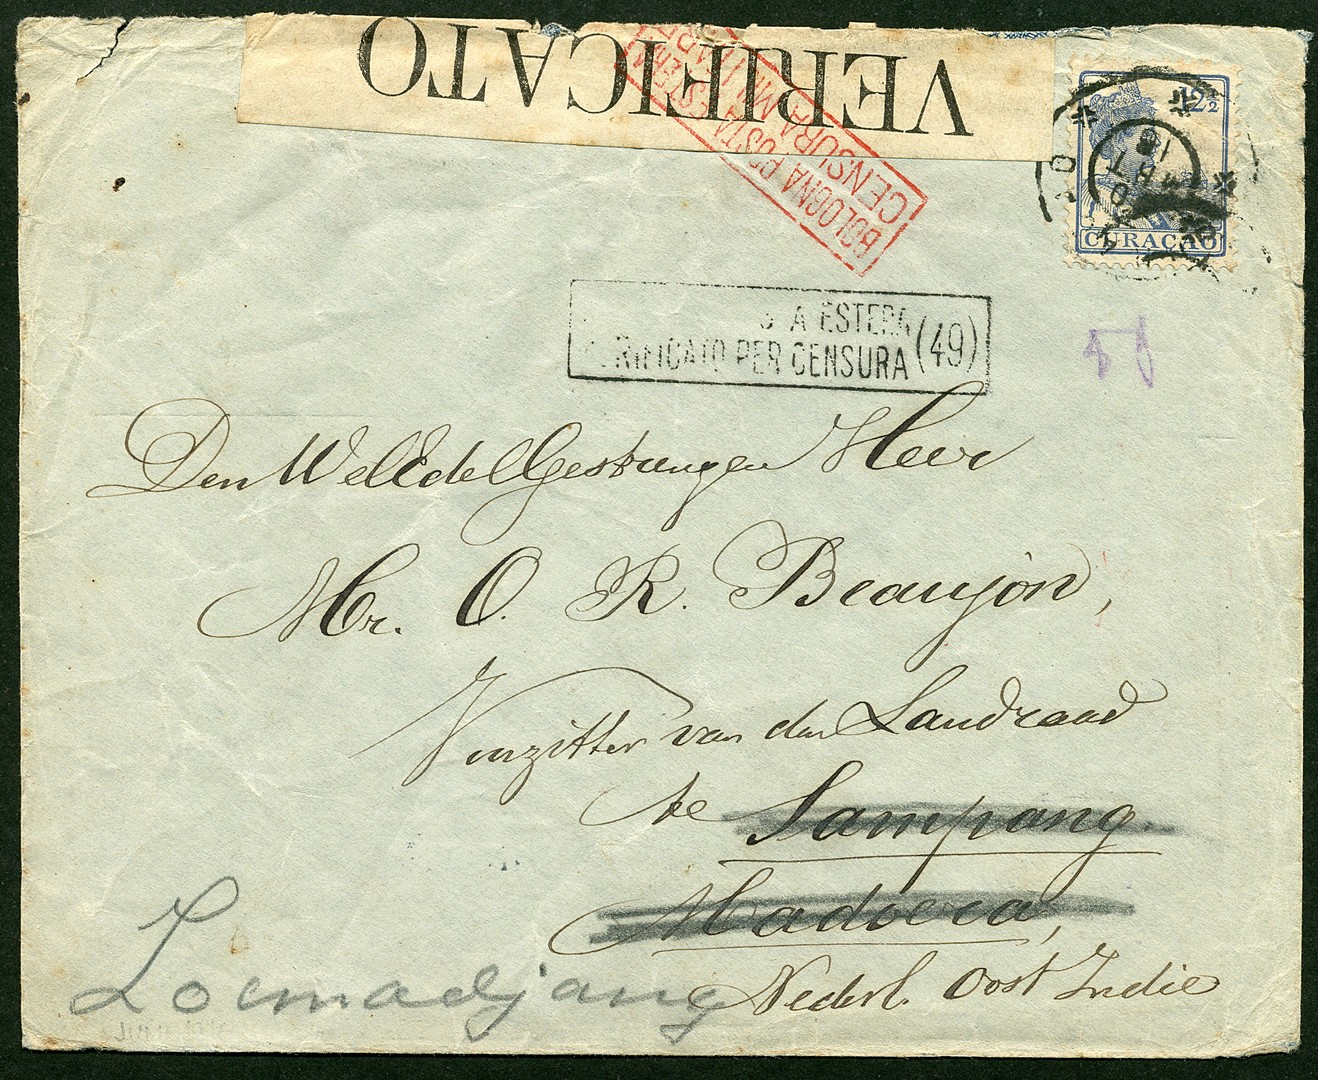 VERIFICATO
BOLOGNA POSTA ESTERA
CENSURA MILITARE
12½
CURAÇAO
A ESTERA
VERIFICATO PER CENSURA (49)
Den WelEdelGestrengen Heer
Mr. O. R. Beaujon,
Voorzitter van den Landraad
te Sampang.
Madoera,
Nederl. Oost Indie
Loemadjang